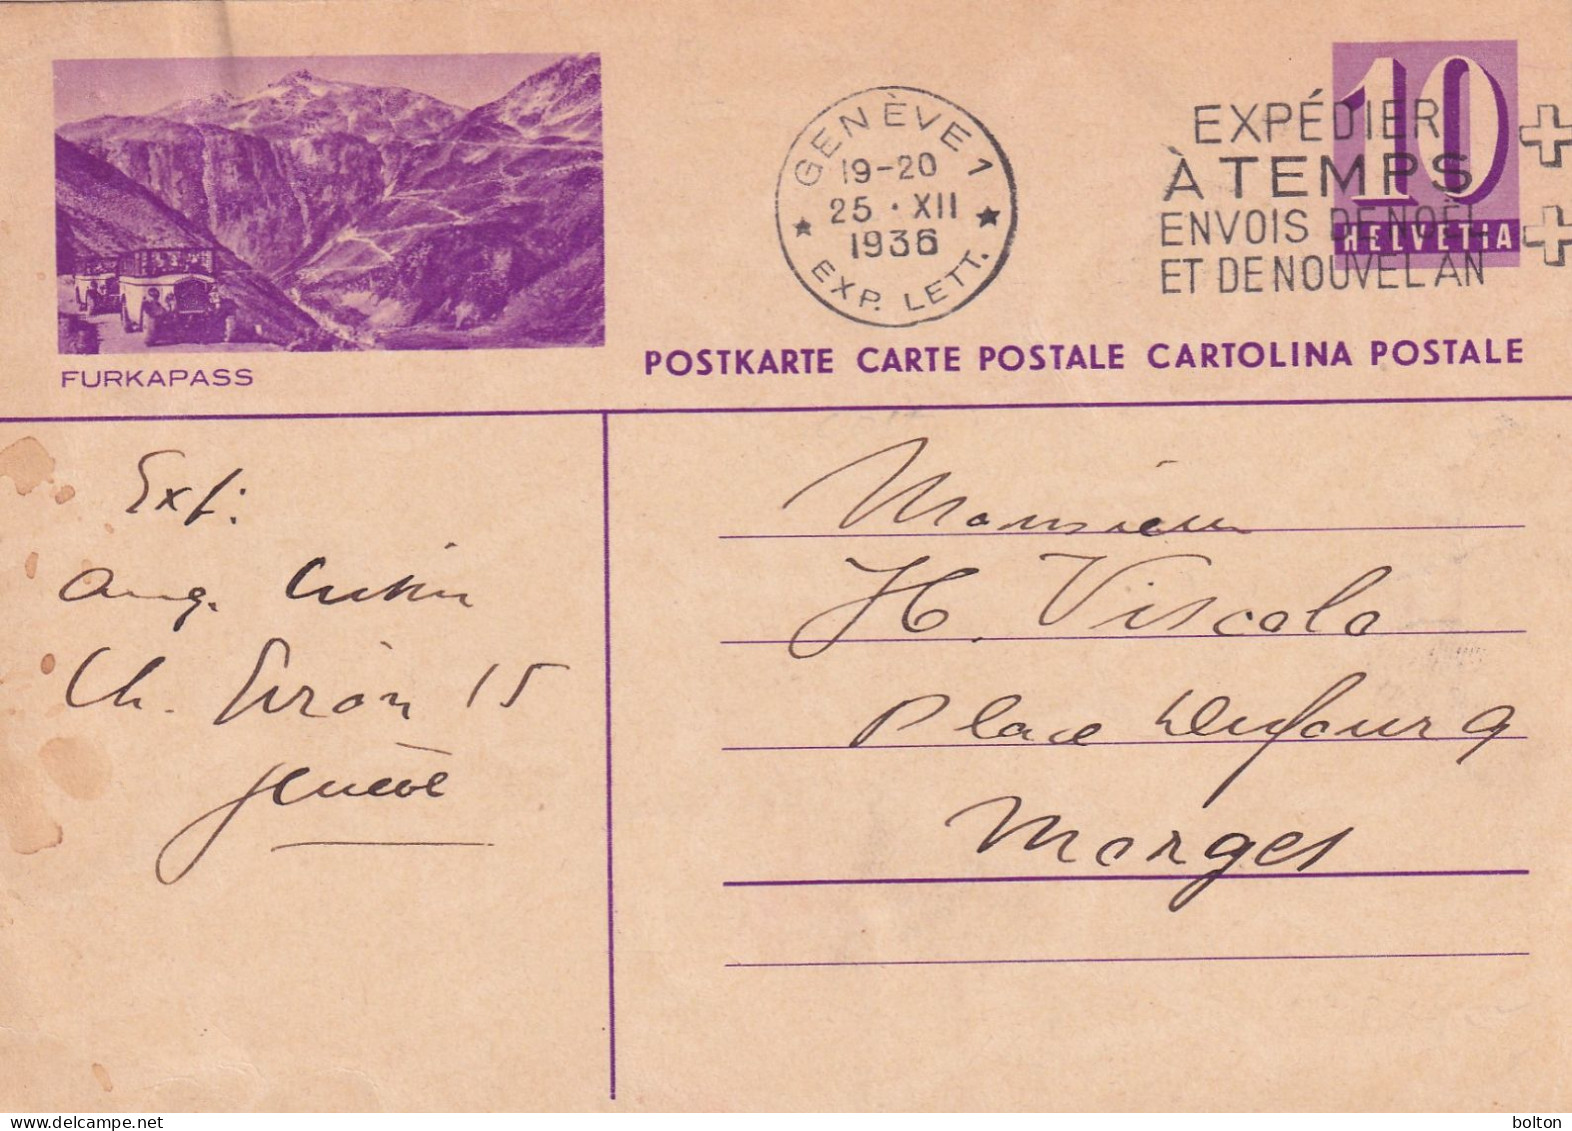 FURKAPASS
GENÈVE 1
19-20
25 · XII
1936
EXP. LETT.
EXPÉDIER
À TEMPS
ENVOIS DE NOËL
ET DE NOUVEL AN
10
HELVETIA
POSTKARTE CARTE POSTALE CARTOLINA POSTALE
Aug.
Ch. 15
Genève
Monsieur
H. Viscolo
Place Dufour 9
Morges
delcampe.net
bolton